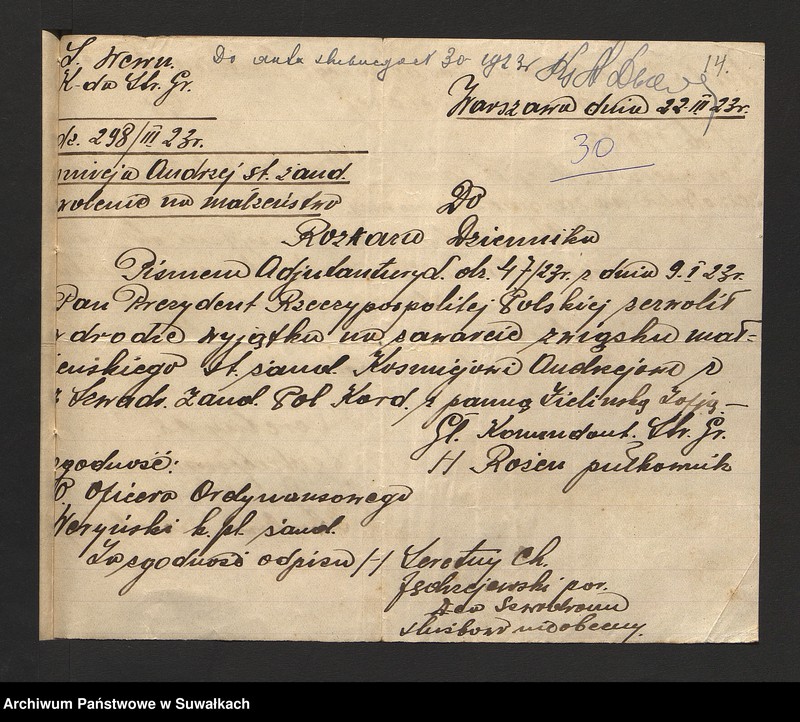 S. Wewn.
K-da Str. Gr.
Do aktu ślubnego № 30 1923r
14.
Warszawa dnia 22 III 23r.
dz. 298/III 23r.
30
Andrzej st. żand.
na małżeństwo
Do
Rozkazu Dziennika
Pismem Adjutantury L. dz. 47/23r. z dnia 9.I 23r.
Pan Prezydent Rzeczypospolitej Polskiej zezwolił
w drodze wyjątku na zawarcie związku mał-
żeńskiego st. żand. Kosmiejowi Andrzejowi z
Szwadr. Żand. Pol Kord. z panną Zielinską Zofją. —
Gł. Komendant. Str. Gr.
zgodność:
/-/ Rożen pułkownik
Oficera Ordynansowego
Weryński k. pl. żand.
Za zgodność odpisu /-/
ch.
Jędrzejewski por.
Szwadronu
służbowo nieobecny.
Archiwum Państwowe w Suwałkach